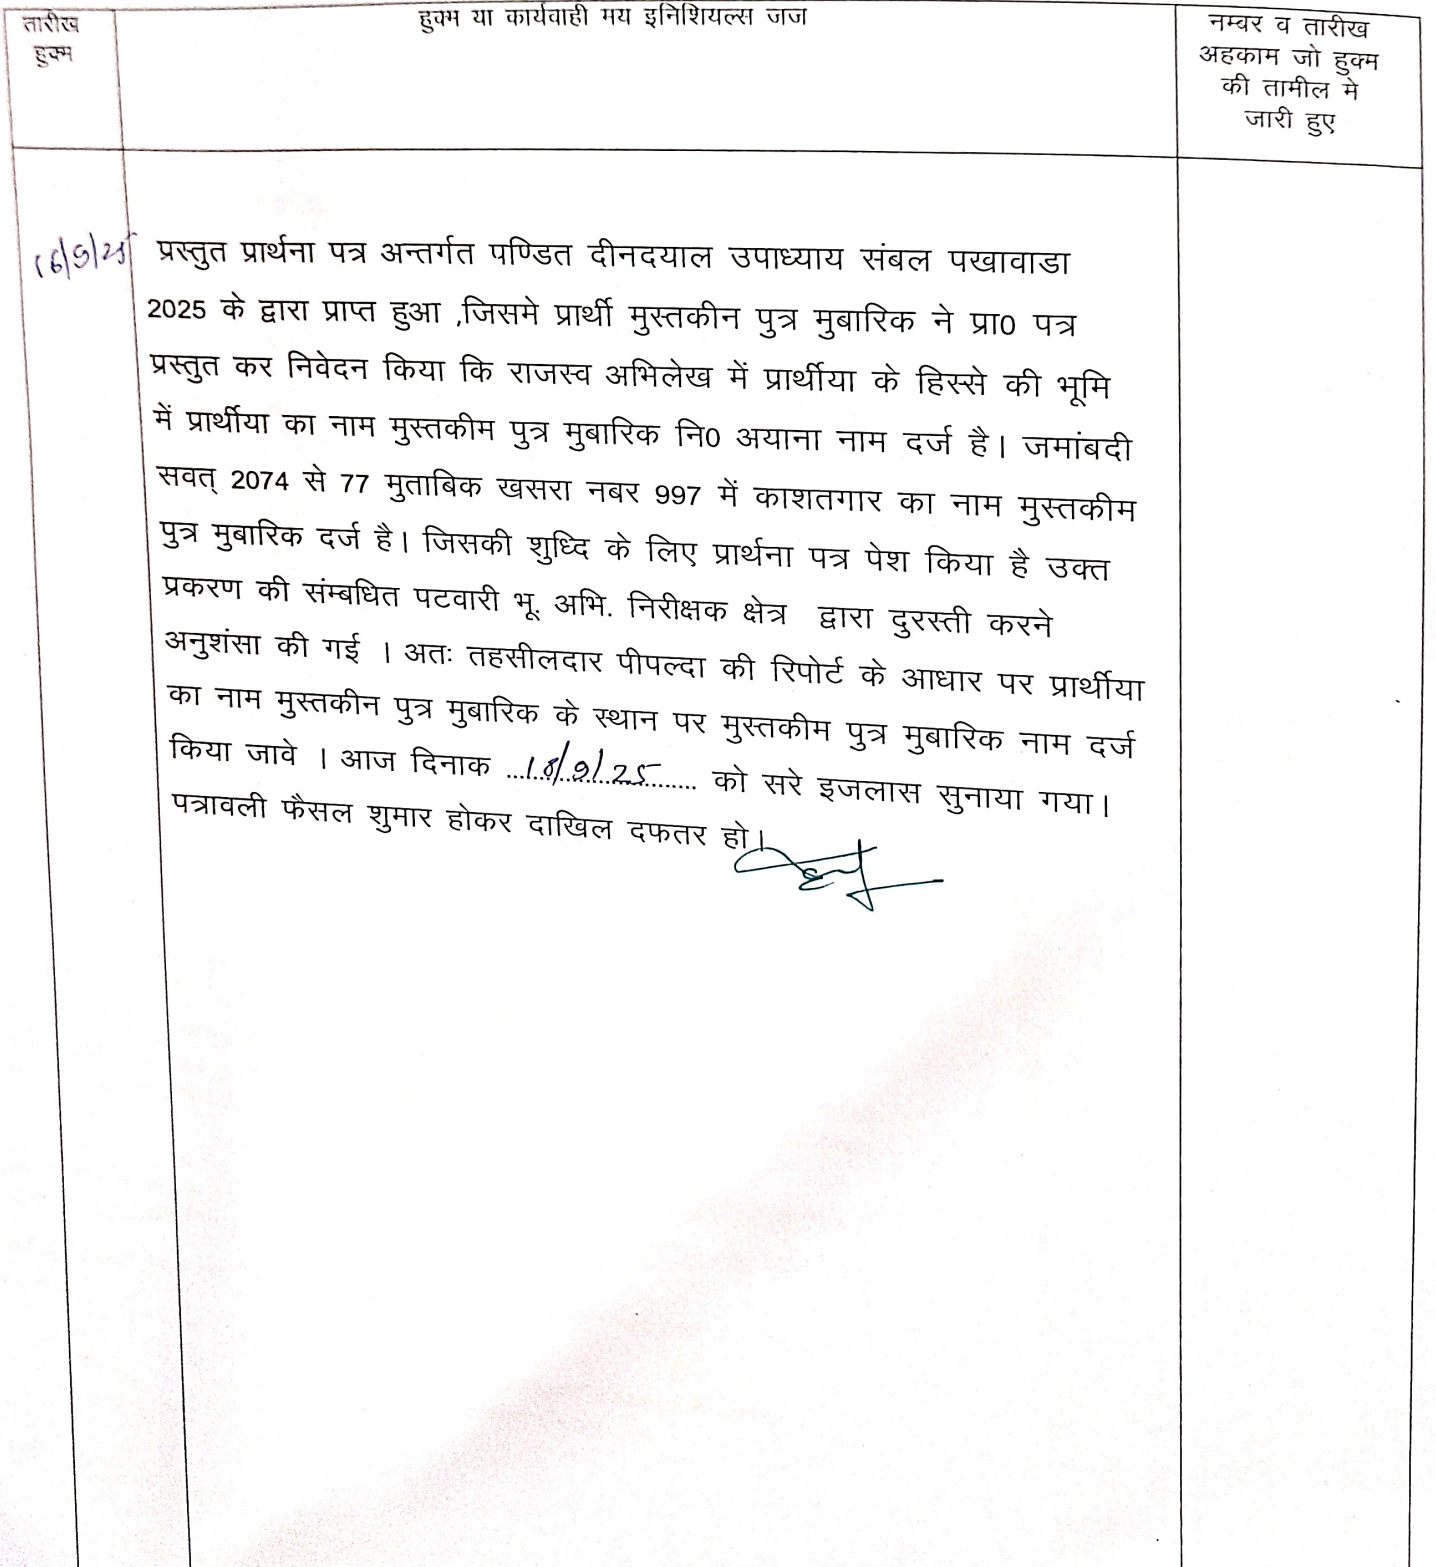 तारीख
हुक्म
हुक्म या कार्यवाही मय इनिशियल्स जज
नम्बर व तारीख
अहकाम जो हुक्म
की तामील मे
जारी हुए
16/9/25
प्रस्तुत प्रार्थना पत्र अन्तर्गत पण्डित दीनदयाल उपाध्याय संबल पखावाडा
2025 के द्वारा प्राप्त हुआ ,जिसमे प्रार्थी मुस्तकीन पुत्र मुबारिक ने प्रा0 पत्र
प्रस्तुत कर निवेदन किया कि राजस्व अभिलेख में प्रार्थीया के हिस्से की भूमि
में प्रार्थीया का नाम मुस्तकीम पुत्र मुबारिक नि0 अयाना नाम दर्ज है। जमांबदी
सवत् 2074 से 77 मुताबिक खसरा नबर 997 में काशतगार का नाम मुस्तकीम
पुत्र मुबारिक दर्ज है। जिसकी शुध्दि के लिए प्रार्थना पत्र पेश किया है उक्त
प्रकरण की संम्बधित पटवारी भू. अभि. निरीक्षक क्षेत्र द्वारा दुरस्ती करने
अनुशंसा की गई । अतः तहसीलदार पीपल्दा की रिपोर्ट के आधार पर प्रार्थीया
का नाम मुस्तकीन पुत्र मुबारिक के स्थान पर मुस्तकीम पुत्र मुबारिक नाम दर्ज
किया जावे । आज दिनाक ...18/9/25... को सरे इजलास सुनाया गया।
पत्रावली फैसल शुमार होकर दाखिल दफतर हो।